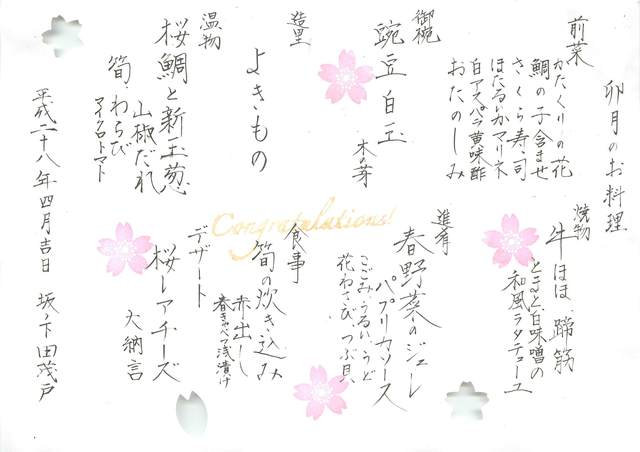 卯月のお料理
前菜
かたくりの花
鯛の子含ませ
さくら寿司
ほたるいかマリネ
白アスパラ黄味酢
おたのしみ
御椀
豌豆白玉
木の芽
造里
よきもの
温物
桜鯛と新玉葱
山椒だれ
筍、わらび
マイクロトマト
焼物
牛ほほ 蹄筋
とまと白味噌の
和風ラタテューユ
進肴
春野菜のジュレ
パプリカソース
こごみ、うるい、うど
花わさび、つぶ貝
食事
筍の炊き込み
赤出し
春キャベツ浅漬け
デザート
桜レアチーズ
大納言
平成二十八年四月吉日 坂ノ下田茂戸
Congratulations!